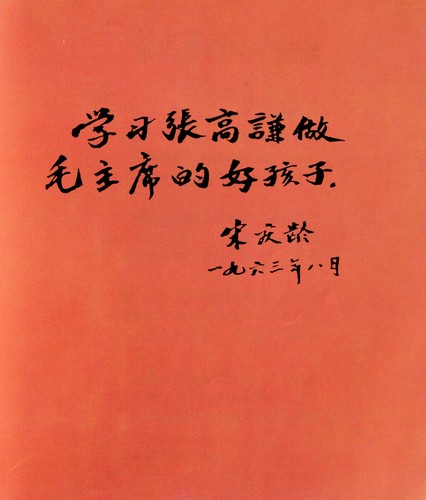 学习張高謙做
毛主席的好孩子.
宋庆龄
一九六三年八月